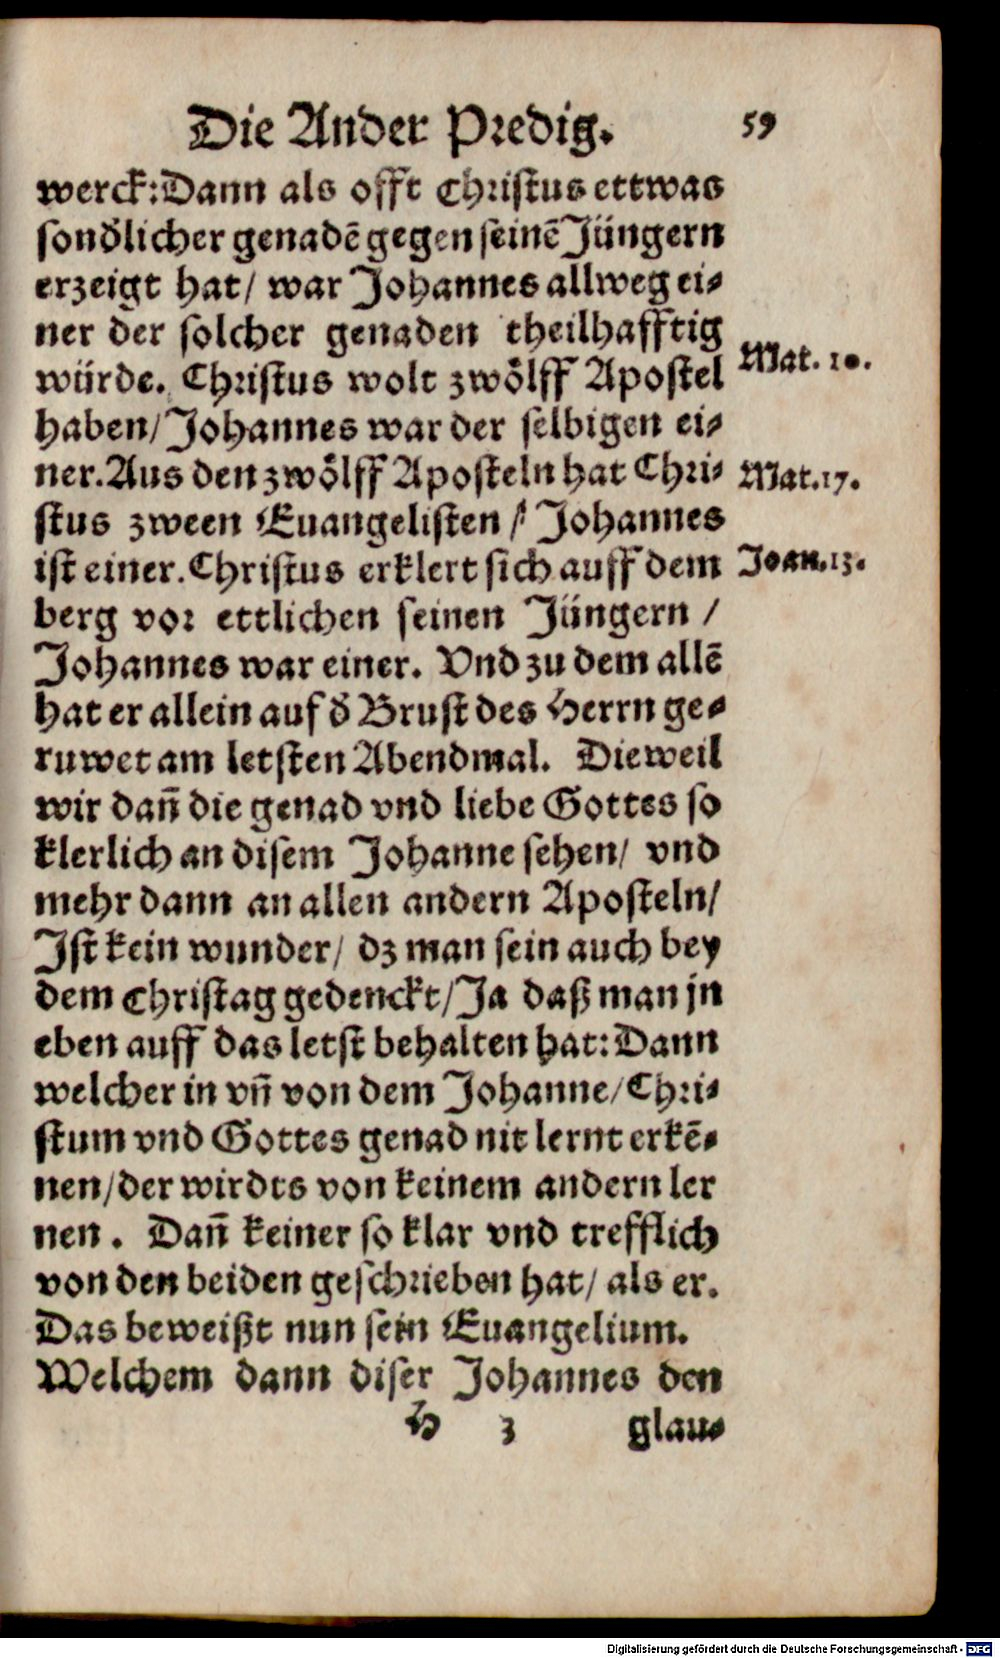 Die Ander Predig. 59
werck: Dann als offt Christus ettwas
sond̄licher genadē gegen seinē Jüngern
erzeigt hat/ war Johannes allweg ei-
ner der solcher genaden theilhafftig
würde. Christus wolt zwölff Apostel
Mat. 10.
haben/ Johannes war der selbigen ei-
ner. Aus den zwölff Aposteln hat Chri-
Mat. 17.
stus zween Euangelisten / Johannes
ist einer. Christus erklert sich auff dem
Joan. 13.
berg vor ettlichen seinen Jüngern /
Johannes war einer. Vnd zu dem allē
hat er allein auf d̄ Brust des Herrn ge-
ruwet am letsten Abendmal. Dieweil
wir dan̄ die genad vnd liebe Gottes so
klerlich an disem Johanne sehen/ vnd
mehr dann an allen andern Aposteln/
Ist kein wunder/ dz man sein auch bey
dem Christag gedenckt/ Ja daß man jn
eben auff das letst behalten hat: Dann
welcher in vn̄ von dem Johanne/ Chri-
stum vnd Gottes genad nit lernt erkē-
nen/ der wirdts von keinem andern ler
nen. Dan̄ keiner so klar vnd trefflich
von den beiden geschrieben hat/ als er.
Das beweißt nun sein Euangelium.
Welchem dann diser Johannes den
H 3 glau-
Digitalisierung gefördert durch die Deutsche Forschungsgemeinschaft - DFG